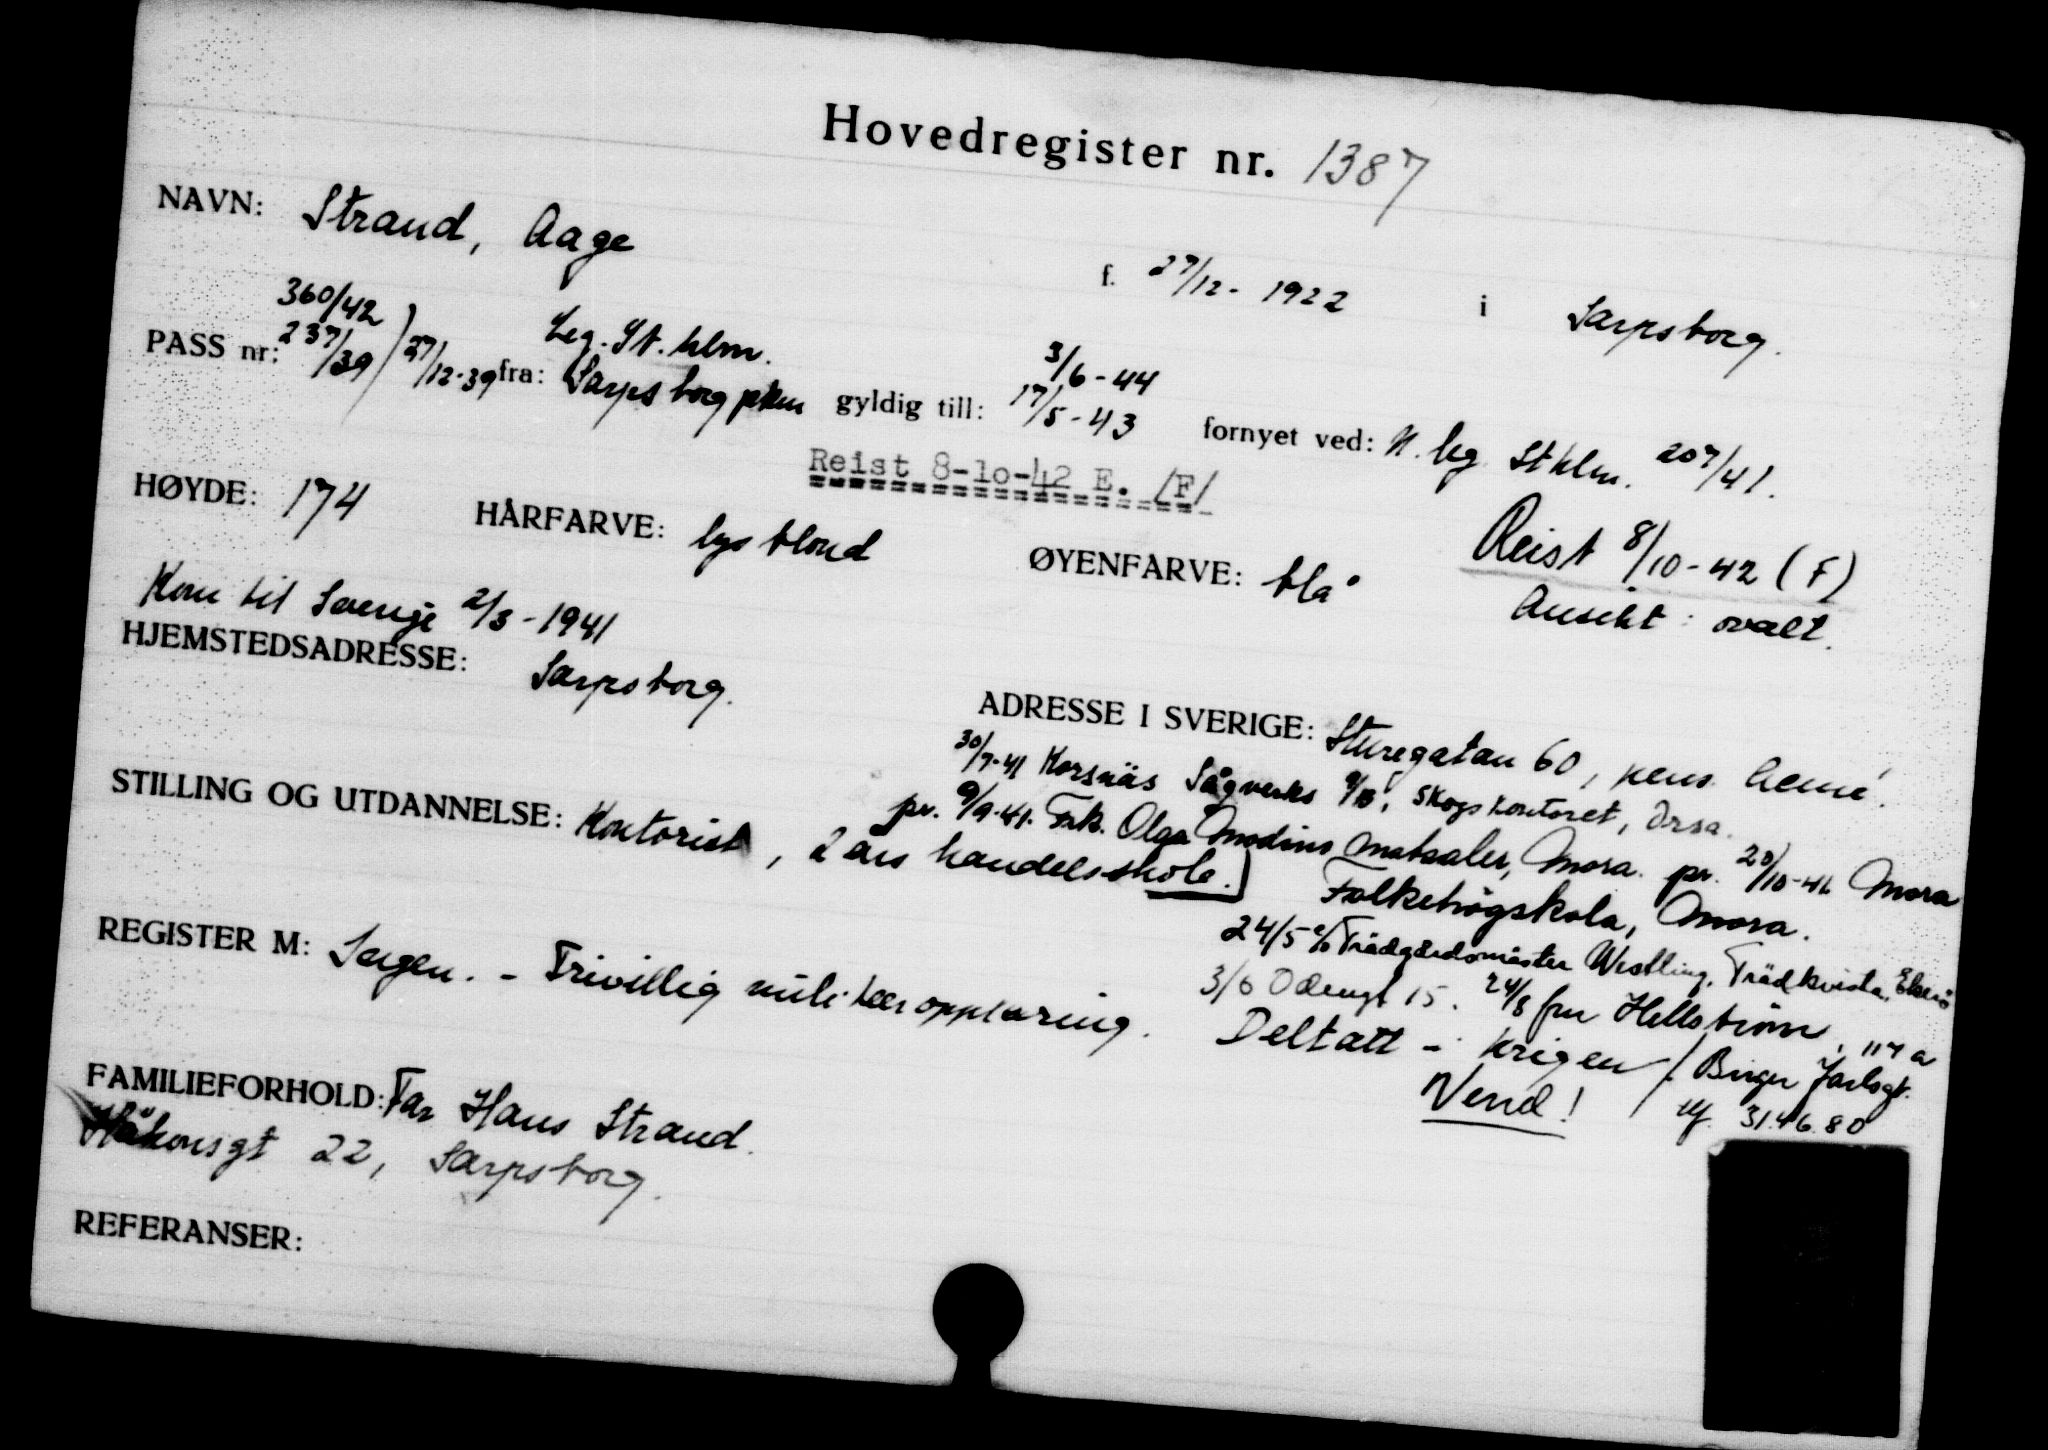 Hovedregister nr. 1387
NAVN: Strand, Aage f. 27/12- 1922 i Sarpsborg.
360/42 Leg. St.hlm. 3/6-44
PASS nr: 237/39 ) 27/12-39 fra: Sarpsborg pkm gyldig till: 17/5-43 fornyet ved: N. leg. Sthlm. 207/41.
Reist 8-10-42 E. /F/
HØYDE: 174 HÅRFARVE: lys blond ØYENFARVE: blå Reist 8/10-42 (F)
Ansikt: ovalt.
Kom til Sverige 2/3-1941
HJEMSTEDSADRESSE: Sarpsborg.
ADRESSE I SVERIGE: Sturegatan 60, pens.
30/7-41 Korsnäs Sågverks A/B, Skogskontoret, Orsa.
pr. 9/9-41. Frk. Olga Modins Matsaler, Mora. pr. 20/10-41 Mora
STILLING OG UTDANNELSE: Kontorist, 2 års handelsskole.]
Folkehögskola, Mora.
24/5 c/o Trädgårdsmäster Westling, Trädkvista, Ekerö
3/6 Odengt 15. 24/8 fru Hellström, 117 a
REGISTER M: Ingen. - Frivillig militæropplæring.
Deltatt - i krigen /. Birger Jarlsgt.
Vend! tlf. 31.46.80
FAMILIEFORHOLD: Far Hans Strand.
Håkonsgt 22, Sarpsborg.
REFERANSER: